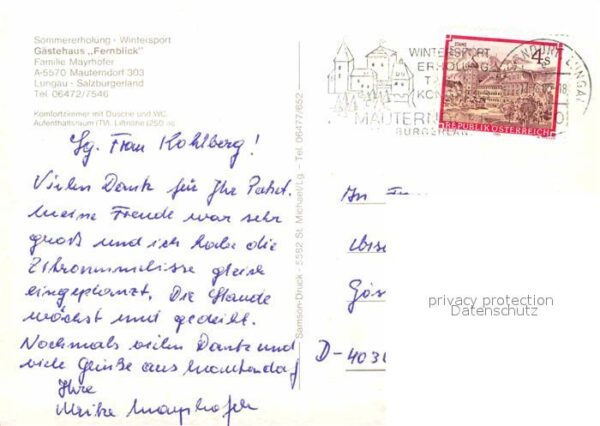 Sommererholung - Wintersport
Gästehaus „Fernblick"
Familie Mayrhofer
A-5570 Mauterndorf 303
Lungau - Salzburgerland
Tel. 06472/7546
Komfortzimmer mit Dusche und WC.
Aufenthaltsraum (TV). Liftnähe (250 m)
Sg. Frau Kohlberg!
Vielen Dank für Ihr Paket.
Meine Freude war sehr
groß und ich habe die
Zitronenmelisse gleich
eingepflanzt. Die Staude
wächst und gedeiht.
Nochmals vielen Dank und
viele Grüße aus Mauterndorf
Ihre
Mayrhofer
Samson-Druck - 5582 St. Michael/Lg. - Tel. 06477/652
WINTERSPORT
ERHOLUNG
MAUTERN
BURGERLAN
NDORF LUNGAU
4 S
STAMS
REPUBLIK ÖSTERREICH
An
D-403
privacy protection
Datenschutz